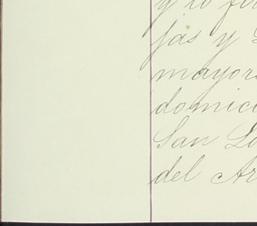 y lo fir
jas y
mayore
domici
San Lo
del Ar